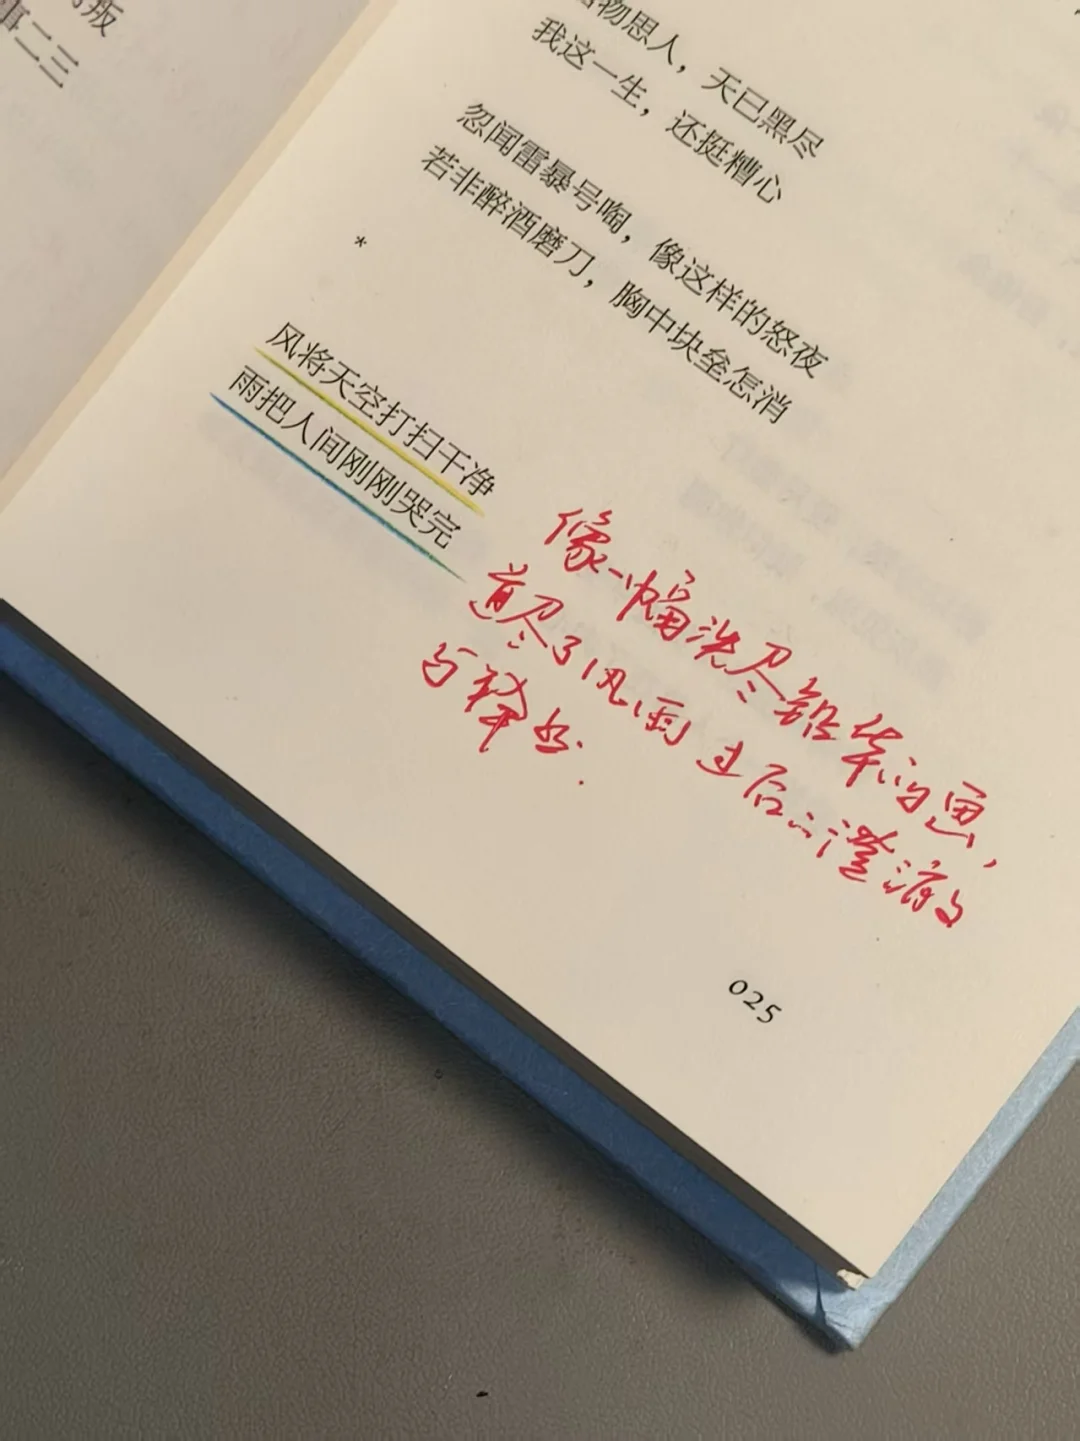 叛
事二三
睹物思人，天已黑尽
我这一生，还挺糟心
忽闻雷暴号啕，像这样的怒夜
若非醉酒磨刀，胸中块垒怎消
*
风将天空打扫干净
雨把人间刚刚哭完
像一幅洗尽铅华的画，
道尽了风雨过后的澄澈
与释然.
025